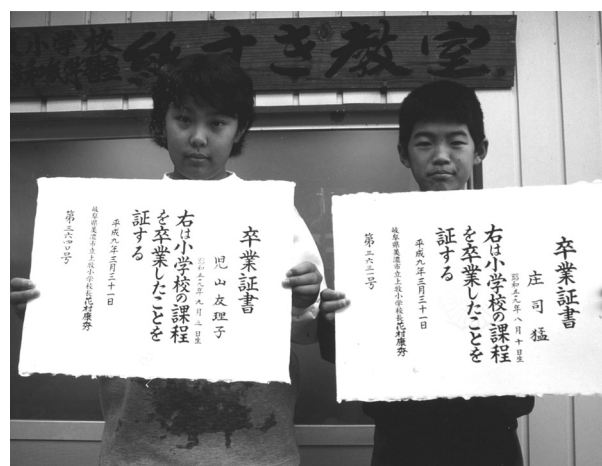 小学校
紙すき教室
卒業証書
児山友理子
昭和五九年九月二日生
右は小学校の課程
を卒業したことを
証する
平成九年三月三十一日
岐阜県美濃市立上牧小学校長花村康夯
第三六四〇号
卒業証書
庄司猛
昭和五九年八月十日生
右は小学校の課程
を卒業したことを
証する
平成九年三月三十一日
岐阜県美濃市立上牧小学校長花村康夯
第三六三一号